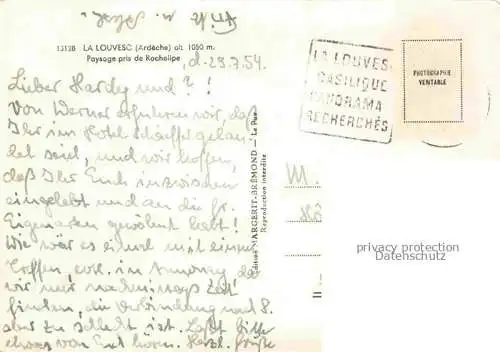 13128 LA LOUVESC (Ardèche) alt. 1050 m.
Paysage pris de Rochelipe
d. 29.7.54.
Lieber Hardy und ? !
Von Werner erfuhren wir, daß
Ihr im Hotel gelan-
det seid, und wir hoffen,
daß Ihr Euch inzwischen
eingelebt und an die fr.
Eigenarten gewöhnt habt!
Wie wäre es einmal mit einem
Treffen, evtl. in da
wir nur nachmittags Zeit
finden, die Verbindung nach S.
aber zu schlecht ist. Laßt bitte
etwas von Euch hören. Herzl. Grüße
LA LOUVESC
BASILIQUE
PANORAMA
RECHERCHÉS
PHOTOGRAPHIE
VERITABLE
Edition MARGERIT-BRÉMOND — Le Puy
Reproduction interdite
M.
privacy protection
Datenschutz